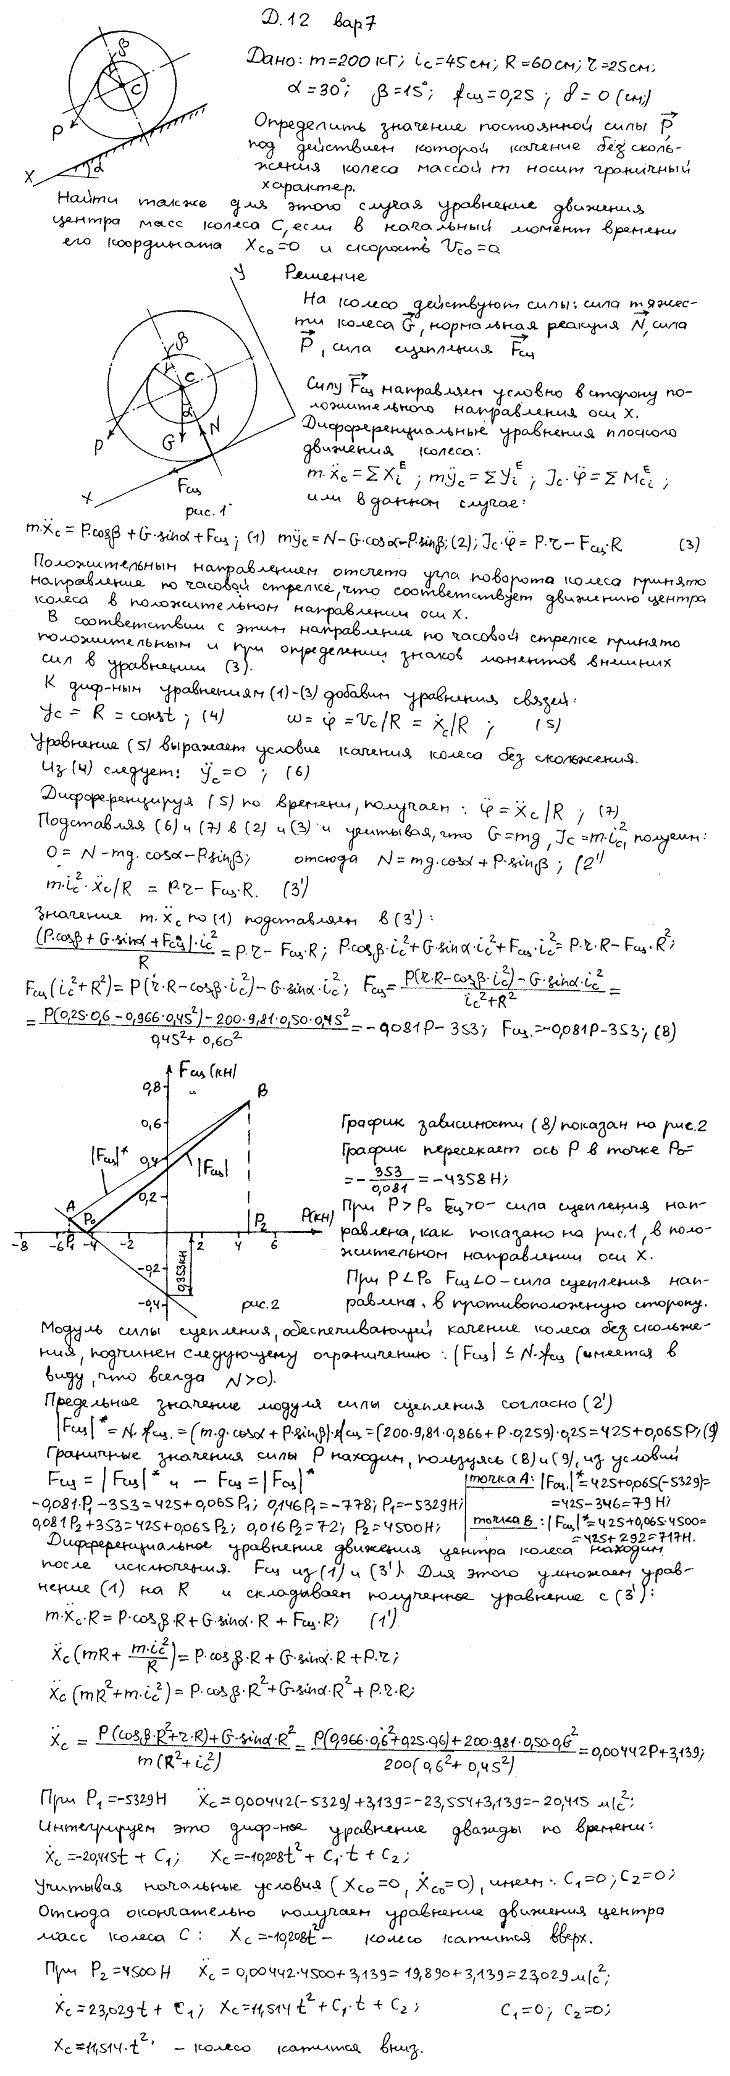 Д.12 вар 7
Дано: m=200 кг; i_c=45 см; R=60 см; r=25 см;
α=30°; β=15°; f_сц=0,25; δ=0 (см)
Определить значение постоянной силы P,
под действием которой качение без сколь-
жения колеса массой m носит граничный
характер.
Найти также для этого случая уравнение движения
центра масс колеса C, если в начальный момент времени
его координата X_C0=0 и скорость V_C0=0
β
C
P
X
α
Решение
На колесо действуют силы: сила тяжес-
ти колеса G, нормальная реакция N, сила
P, сила сцепления F_сц
Силу F_сц направляем условно в сторону по-
ложительного направления оси X.
Дифференциальные уравнения плоского
движения колеса:
m·ẍ_c = ΣX_i^E; mÿ_c = ΣY_i^E; J_c·φ̈ = ΣM_ci^E;
или в данном случае:
Y
β
C
α
P
G
N
F_сц
X
рис. 1
m·ẍ_c = P·cosβ + G·sinα + F_сц; (1) mÿ_c = N - G·cosα - P·sinβ; (2); J_c·φ̈ = P·r - F_сц·R (3)
Положительным направлением отсчета угла поворота колеса принято
направление по часовой стрелке, что соответствует движению центра
колеса в положительном направлении оси X.
В соответствии с этим направление по часовой стрелке принято
положительным и при определении знаков моментов внешних
сил в уравнении (3).
К диф-ным уравнениям (1)-(3) добавим уравнения связей:
y_c = R = const; (4) ω = φ̇ = V_c/R = ẋ_c/R; (5)
Уравнение (5) выражает условие качения колеса без скольжения.
Из (4) следует: ÿ_c = 0; (6)
Дифференцируя (5) по времени, получаем: φ̈ = ẍ_c/R; (7)
Подставляя (6) и (7) в (2) и (3) и учитывая, что G=mg, J_c=m·i_c², получим:
0 = N - mg·cosα - P·sinβ; отсюда N = mg·cosα + P·sinβ; (2')
m·i_c²·ẍ_c/R = P·r - F_сц·R. (3')
Значение m·ẍ_c по (1) подставляем в (3'):
(P·cosβ + G·sinα + F_сц)·i_c²/R = P·r - F_сц·R; P·cosβ·i_c² + G·sinα·i_c² + F_сц·i_c² = P·r·R - F_сц·R²;
F_сц(i_c²+R²) = P(r·R - cosβ·i_c²) - G·sinα·i_c²; F_сц = (P(r·R - cosβ·i_c²) - G·sinα·i_c²)/(i_c²+R²) =
= (P(0,25·0,6 - 0,966·0,45²) - 200·9,81·0,50·0,45²)/(0,45² + 0,60²) = -0,081P - 353; F_сц = -0,081P - 353; (8)
F_сц (кН)
0,8
0,6
0,4
0,2
-0,2
-0,4
-8 -6 P₁ -4 -2 2 P₂ 6
P(кН)
|F_сц|* |F_сц|
A P₀ B
0,353кН
рис. 2
График зависимости (8) показан на рис. 2
График пересекает ось P в точке P₀=
= - 353/0,081 = -4358 Н;
При P > P₀ F_сц>0 - сила сцепления нап-
равлена, как показано на рис. 1, в поло-
жительном направлении оси X.
При P < P₀ F_сц<0 - сила сцепления нап-
равлена в противоположную сторону.
Модуль силы сцепления, обеспечивающей качение колеса без скольже-
ния, подчинен следующему ограничению: |F_сц| ≤ N·f_сц (имеется в
виду, что всегда N>0).
Предельное значение модуля силы сцепления согласно (2')
|F_сц|* = N·f_сц. = (m·g·cosα + P·sinβ)·f_сц = (200·9,81·0,866 + P·0,259)·0,25 = 425 + 0,065P; (9)
Граничные значения силы P находим, пользуясь (8) и (9), из условий
F_сц = |F_сц|* и - F_сц = |F_сц|*
-0,081·P₁ - 353 = 425 + 0,065P₁; 0,146P₁ = -778; P₁ = -5329 Н;
0,081P₂ + 353 = 425 + 0,065P₂; 0,016P₂ = 72; P₂ = 4500 Н;
точка A: |F_сц.|* = 425 + 0,065(-5329) =
= 425 - 346 = 79 Н;
точка B: |F_сц|* = 425 + 0,065·4500 =
= 425 + 292 = 717 Н.
Дифференциальное уравнение движения центра колеса находим
после исключения F_сц из (1) и (3'). Для этого умножаем урав-
нение (1) на R и складываем полученное уравнение с (3'):
m·ẍ_c·R = P·cosβ·R + G·sinα·R + F_сц·R; (1')
ẍ_c(mR + m·i_c²/R) = P·cosβ·R + G·sinα·R + P·r;
ẍ_c(mR² + m·i_c²) = P·cosβ·R² + G·sinα·R² + P·r·R;
ẍ_c = (P(cosβ·R² + r·R) + G·sinα·R²)/(m(R² + i_c²)) = (P(0,966·0,6² + 0,25·0,6) + 200·9,81·0,50·0,6²)/(200(0,6² + 0,45²)) = 0,00442P + 3,139;
При P₁ = -5329 Н ẍ_c = 0,00442(-5329) + 3,139 = -23,554 + 3,139 = -20,415 м/с²;
Интегрируем это диф-ное уравнение дважды по времени:
ẋ_c = -20,415t + C₁; x_c = -10,208t² + C₁·t + C₂;
Учитывая начальные условия (X_C0=0, Ẋ_C0=0), имеем: C₁=0; C₂=0;
Отсюда окончательно получаем уравнение движения центра
масс колеса C: X_c = -10,208t² - колесо катится вверх.
При P₂ = 4500 Н ẍ_c = 0,00442·4500 + 3,139 = 19,890 + 3,139 = 23,029 м/с²;
ẋ_c = 23,029t + C₁; x_c = 11,514t² + C₁·t + C₂; C₁=0; C₂=0;
x_c = 11,514·t². - колесо катится вниз.